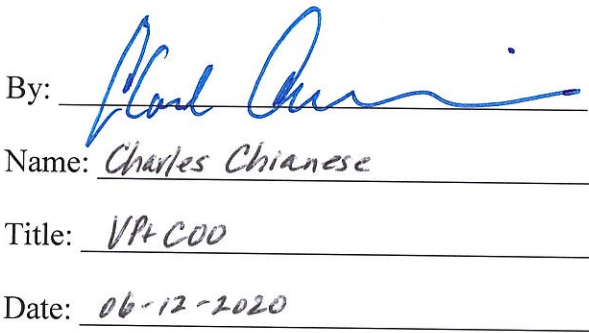 By:
Name: Charles Chianese
Title: VP+ COO
Date: 06-12-2020